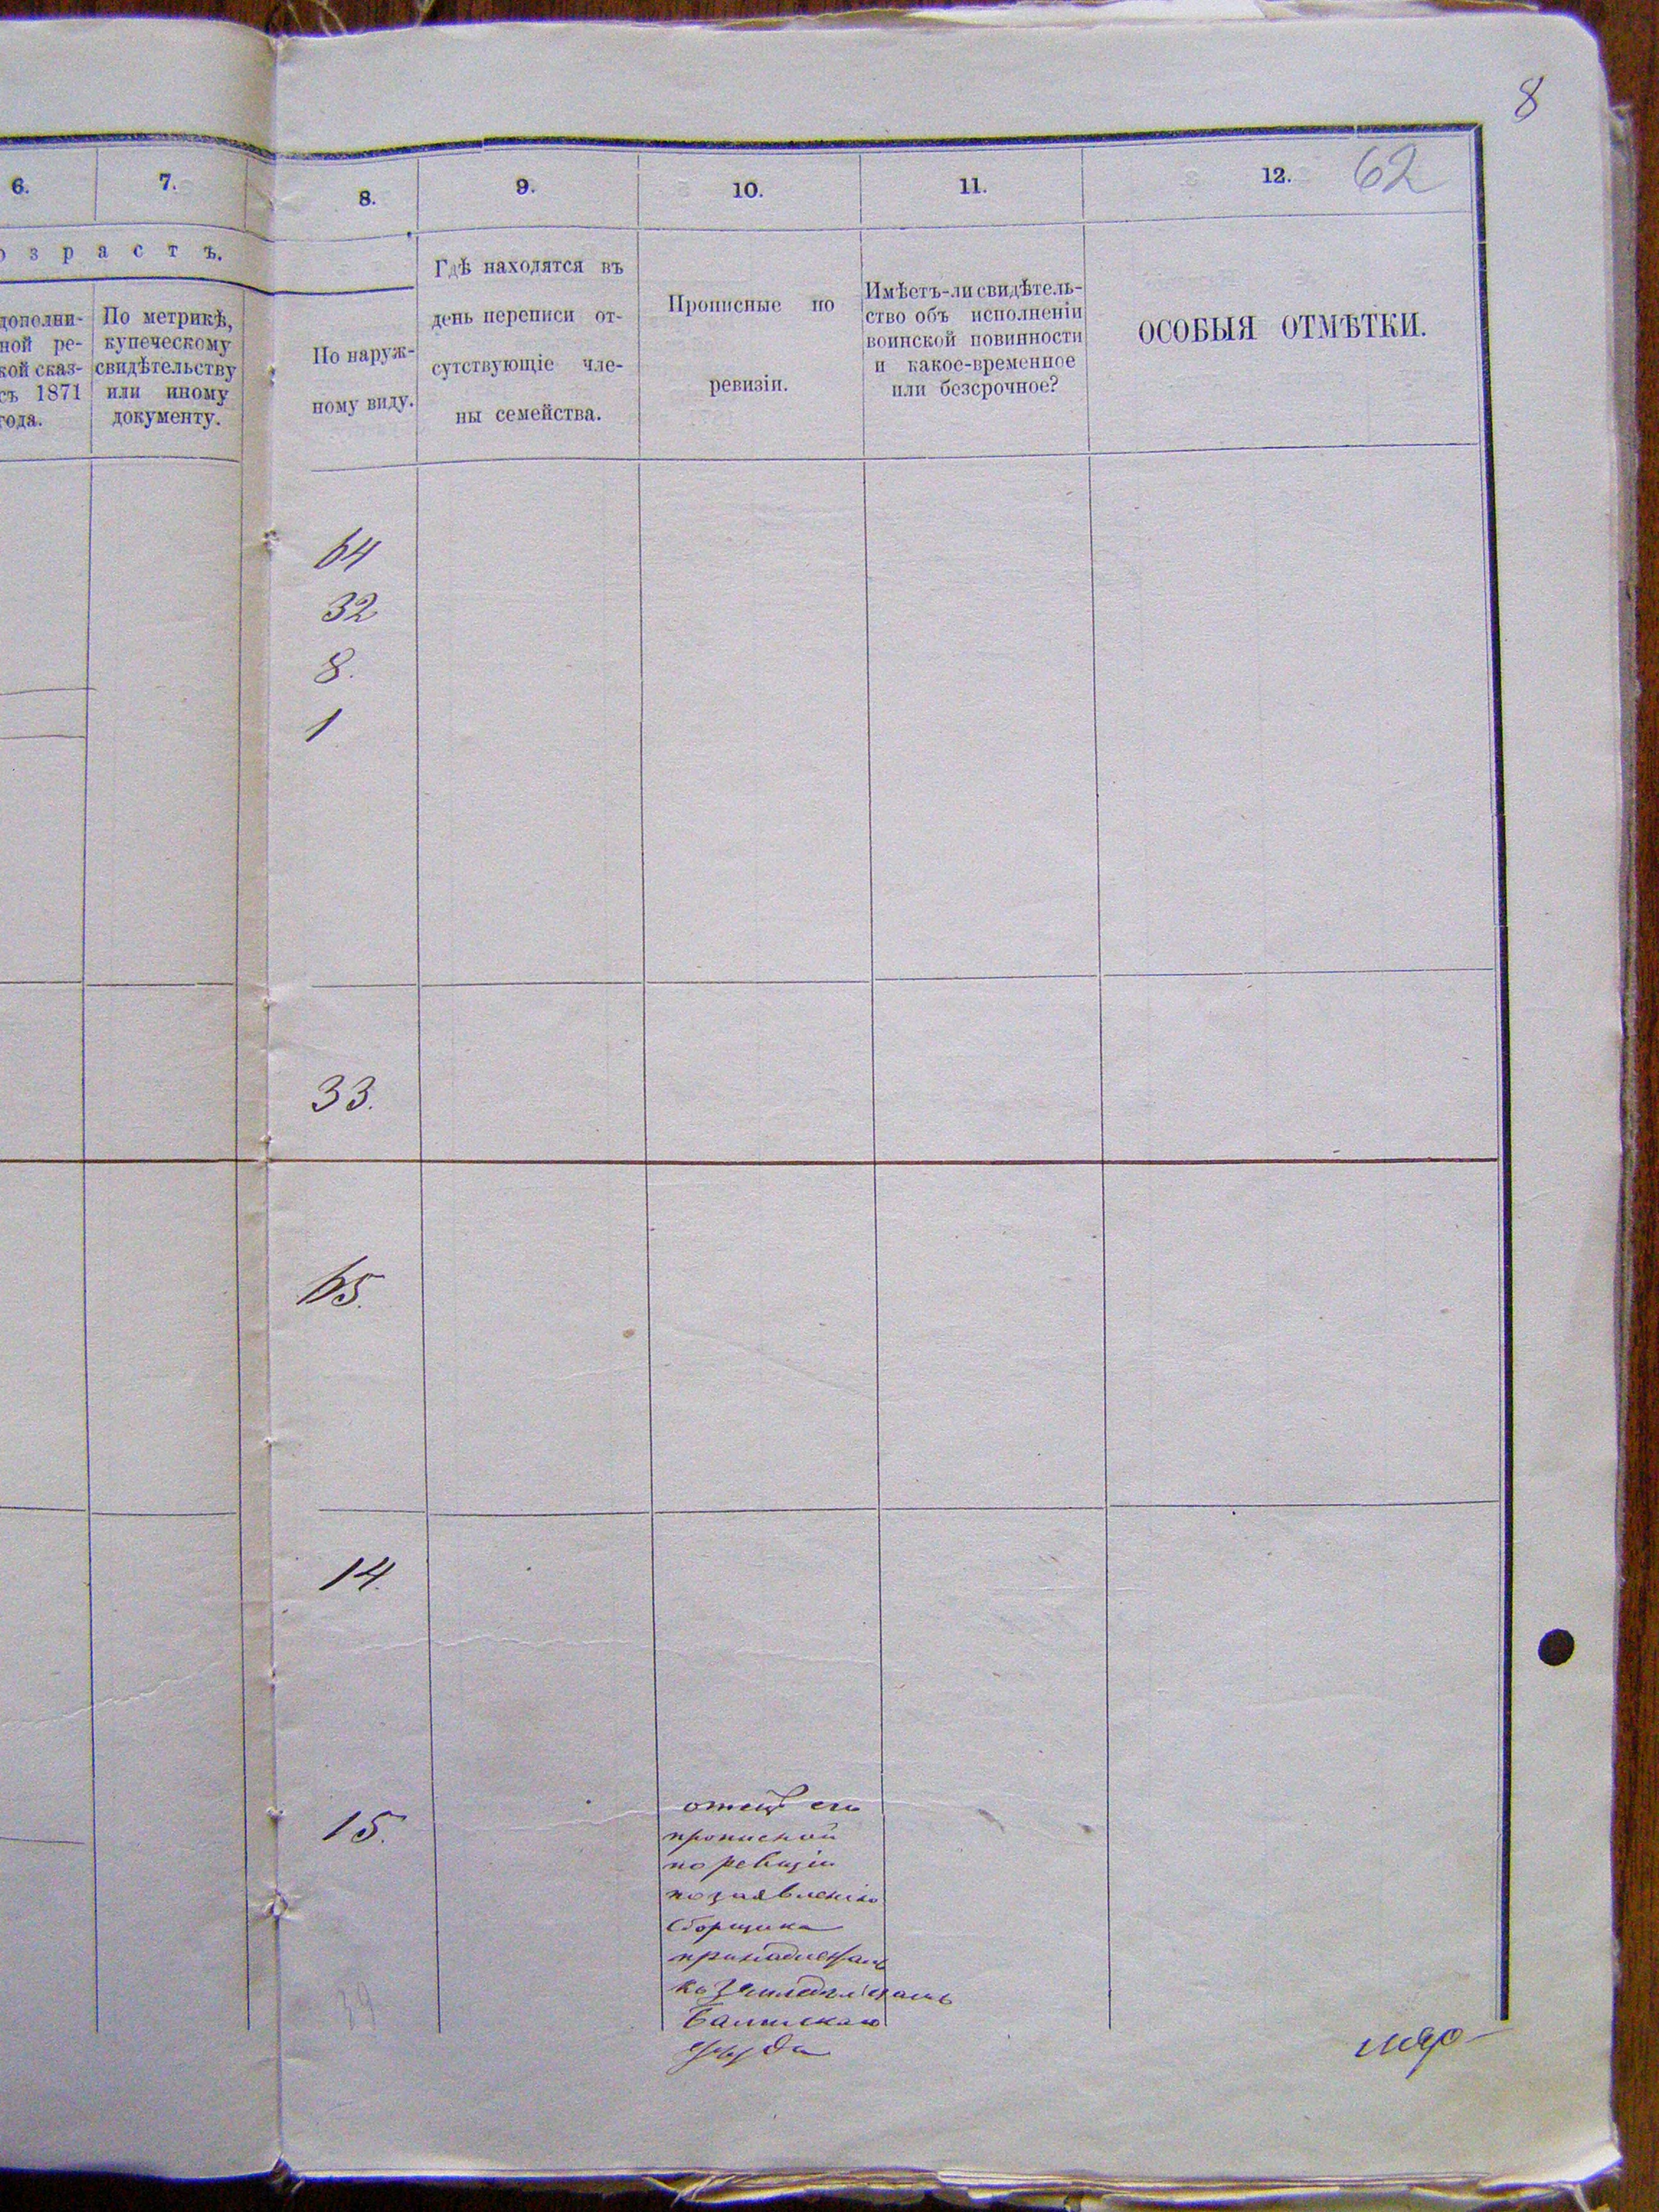 8
62
6. 7. 8. 9. 10. 11. 12.
о з р а с т ъ.
дополни-
ной ре-
кой сказ-
съ 1871
года.
По метрикѣ,
купеческому
свидѣтельству
или иному
документу.
По наруж-
ному виду.
Гдѣ находятся въ
день переписи от-
сутствующіе чле-
ны семейства.
Прописные по
ревизіи.
Имѣетъ-ли свидѣтель-
ство объ исполненіи
воинской повинности
и какое-временное
или безсрочное?
ОСОБЫЯ ОТМѢТКИ.
64
32
8.
1
33.
65.
14.
15.
отецъ его
прописной
по ревизіи
по заявленію
сборщика
принадлежалъ
къ
Балтскаго
уѣзда
39